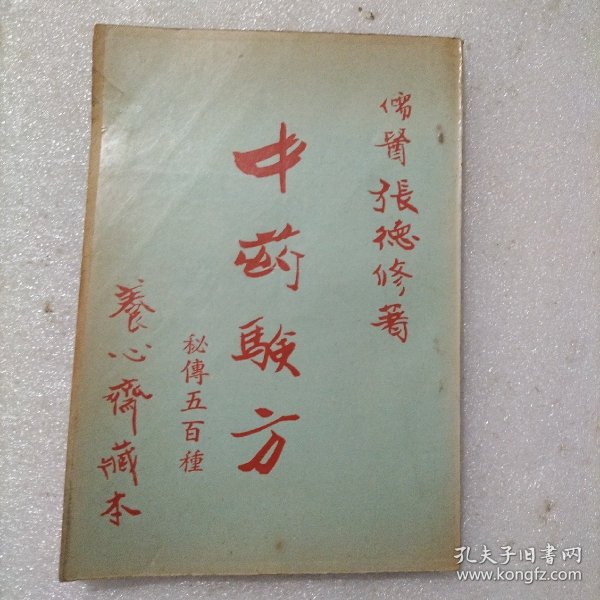 儒醫張德修著
中药験方
秘傳五百種
養心齋藏本
孔夫子旧書网
www.kongfz.com